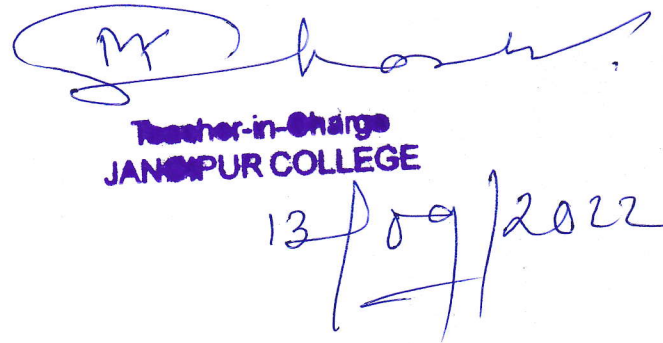 Teacher-in-Charge
JANGIPUR COLLEGE
13/09/2022